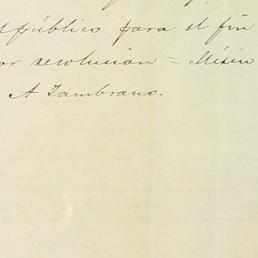 público para el fin
or resolucion = Méxic
A Zambrano.